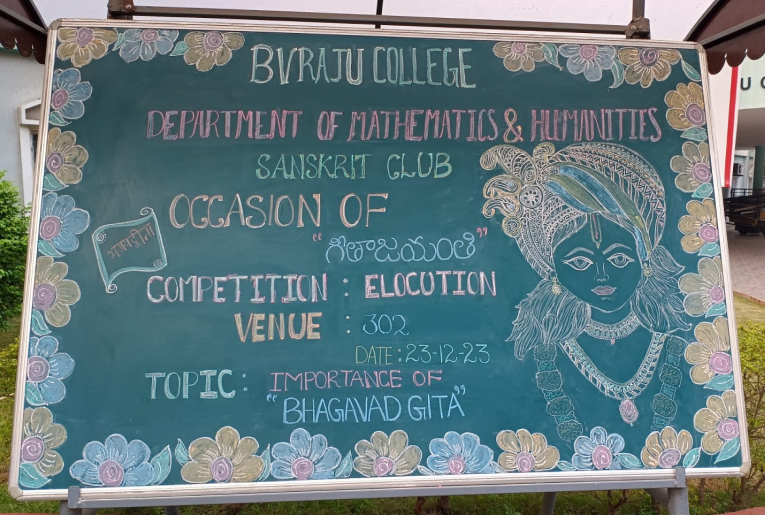 BVRAJU COLLEGE
DEPARTMENT OF MATHEMATICS & HUMANITIES
SANSKRIT CLUB
OCCASION OF
"గీతాజయంతి"
भगवद्गीता
COMPETITION : ELOCUTION
VENUE : 302
DATE : 23-12-23
TOPIC : IMPORTANCE OF
"BHAGAVAD GITA"